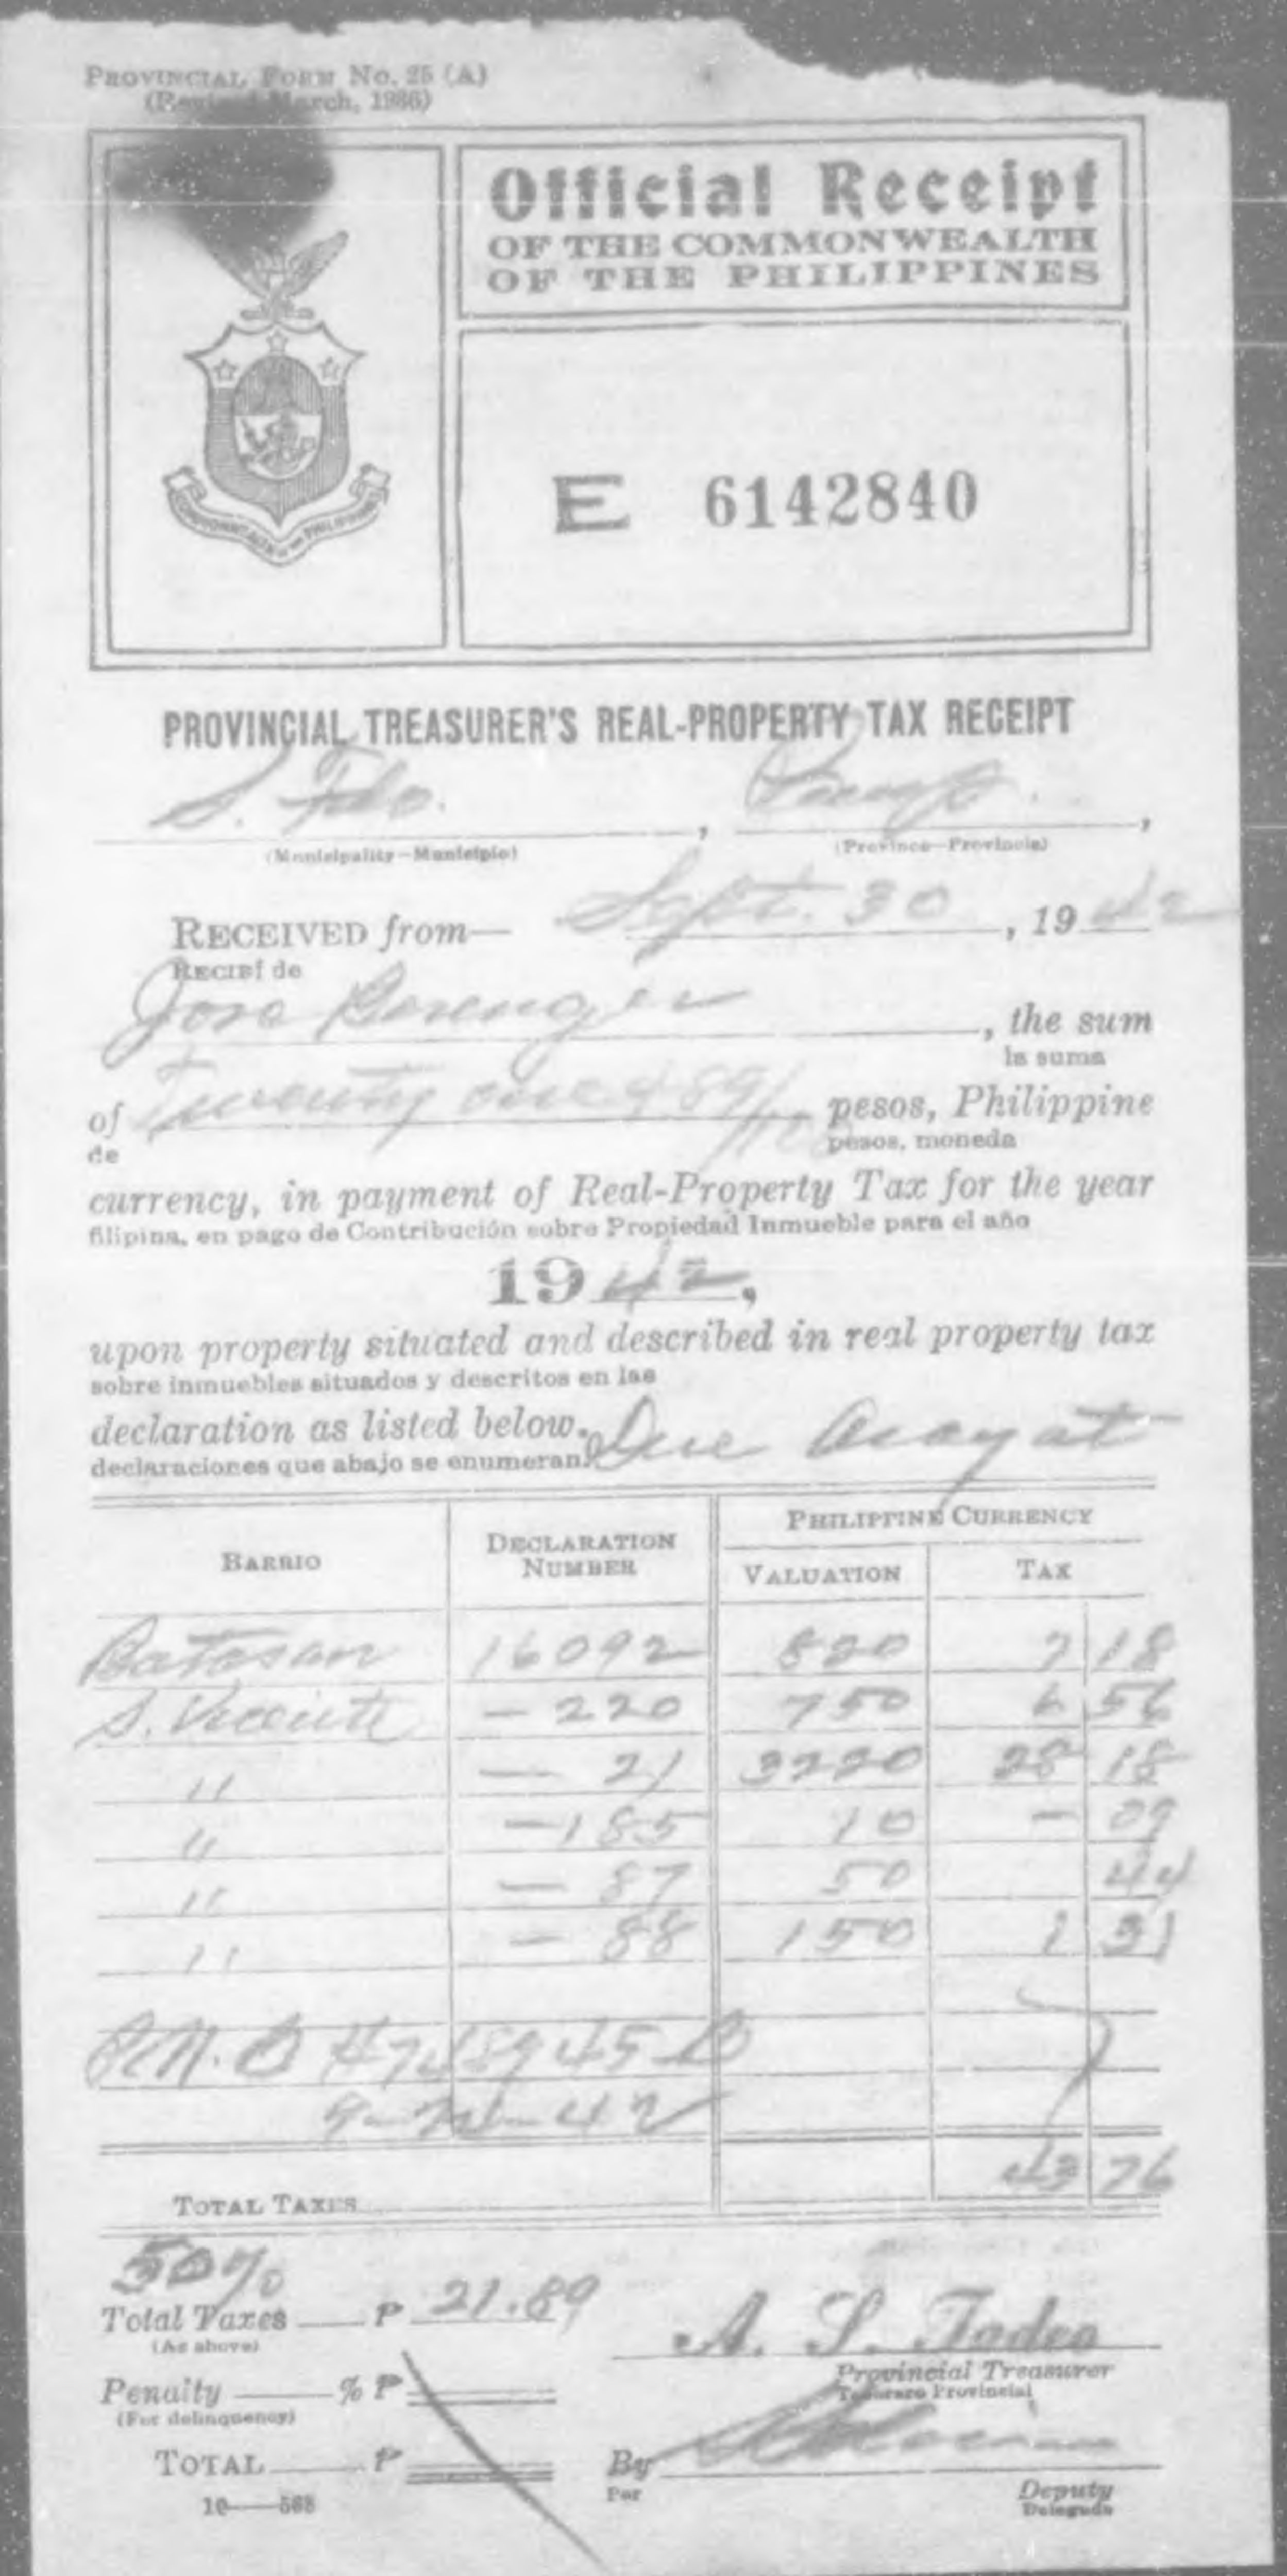 PROVINCIAL FORM No. 25 (A)
(Revised March, 1936)
Official Receipt
OF THE COMMONWEALTH
OF THE PHILIPPINES
COMMONWEALTH OF THE PHILIPPINES
E 6142840
PROVINCIAL TREASURER'S REAL-PROPERTY TAX RECEIPT
S. Fdo. , Pamp. ,
(Municipality—Municipio) (Province—Provincia)
RECEIVED from— Sept. 30 , 19 42
RECIBÍ de
Jose Berenguer , the sum
la suma
of Twenty one & 89/100 pesos, Philippine
de pesos, moneda
currency, in payment of Real-Property Tax for the year
filipina, en pago de Contribución sobre Propiedad Inmueble para el año
1942,
upon property situated and described in real property tax
sobre inmuebles situados y descritos en las
declaration as listed below. Due Arayat
declaraciones que abajo se enumeran.
BARRIO DECLARATION NUMBER PHILIPPINE CURRENCY
VALUATION TAX
Batasan 16092 820 7 18
S. Vicente - 220 750 6 56
" - 21 3220 28 18
" - 185 10 - 09
" - 87 50 44
" - 88 150 1 31
43 76
TOTAL TAXES
50%
Total Taxes ₱ 21.89
(As above)
A. S. Tadeo
Provincial Treasurer
Tesorero Provincial
Penalty % ₱
(For delinquency)
TOTAL ₱
By
Por
Deputy
Delegado
10—568